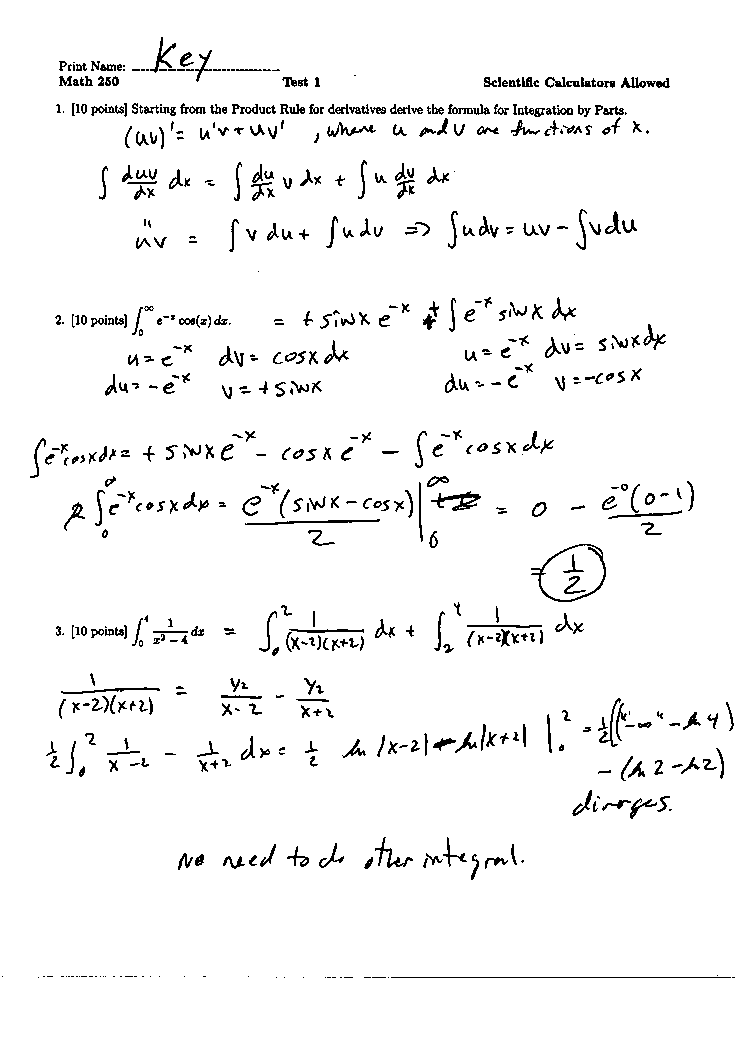 Print Name: Key
Math 250 Test 1 Scientific Calculators Allowed
1. [10 points] Starting from the Product Rule for derivatives derive the formula for Integration by Parts.
(uv)' = u'v + uv' , where u and v are functions of x.
∫ duv/dx dx = ∫ du/dx v dx + ∫ u dv/dx dx
"
uv = ∫ v du + ∫ u dv ⇒ ∫ u dv = uv − ∫ v du
2. [10 points] ∫₀^∞ e^{−x} cos(x) dx. = + sinx e^{−x} + ∫ e^{−x} sinx dx
u = e^{−x} dv = cosx dx u = e^{−x} dv = sinx dx
du = −e^{−x} v = + sinx du = −e^{−x} v = −cosx
∫ e^{−x} cosx dx = + sinx e^{−x} − cosx e^{−x} − ∫ e^{−x} cosx dx
2 ∫₀^∞ e^{−x} cosx dx = e^{−x}(sinx − cosx)/2 |₀^∞ = 0 − e^{−0}(0−1)/2
= 1/2
3. [10 points] ∫₀⁴ 1/(x²−4) dx = ∫₀² 1/((x−2)(x+2)) dx + ∫₂⁴ 1/((x−2)(x+2)) dx
1/((x−2)(x+2)) = ½/(x−2) − ½/(x+2)
½ ∫₀² 1/(x−2) − 1/(x+2) dx = ½ ln|x−2| − ln|x+2| |₀² = ½(("−∞" − ln 4)
− (ln 2 − ln 2)
diverges.
No need to do other integral.